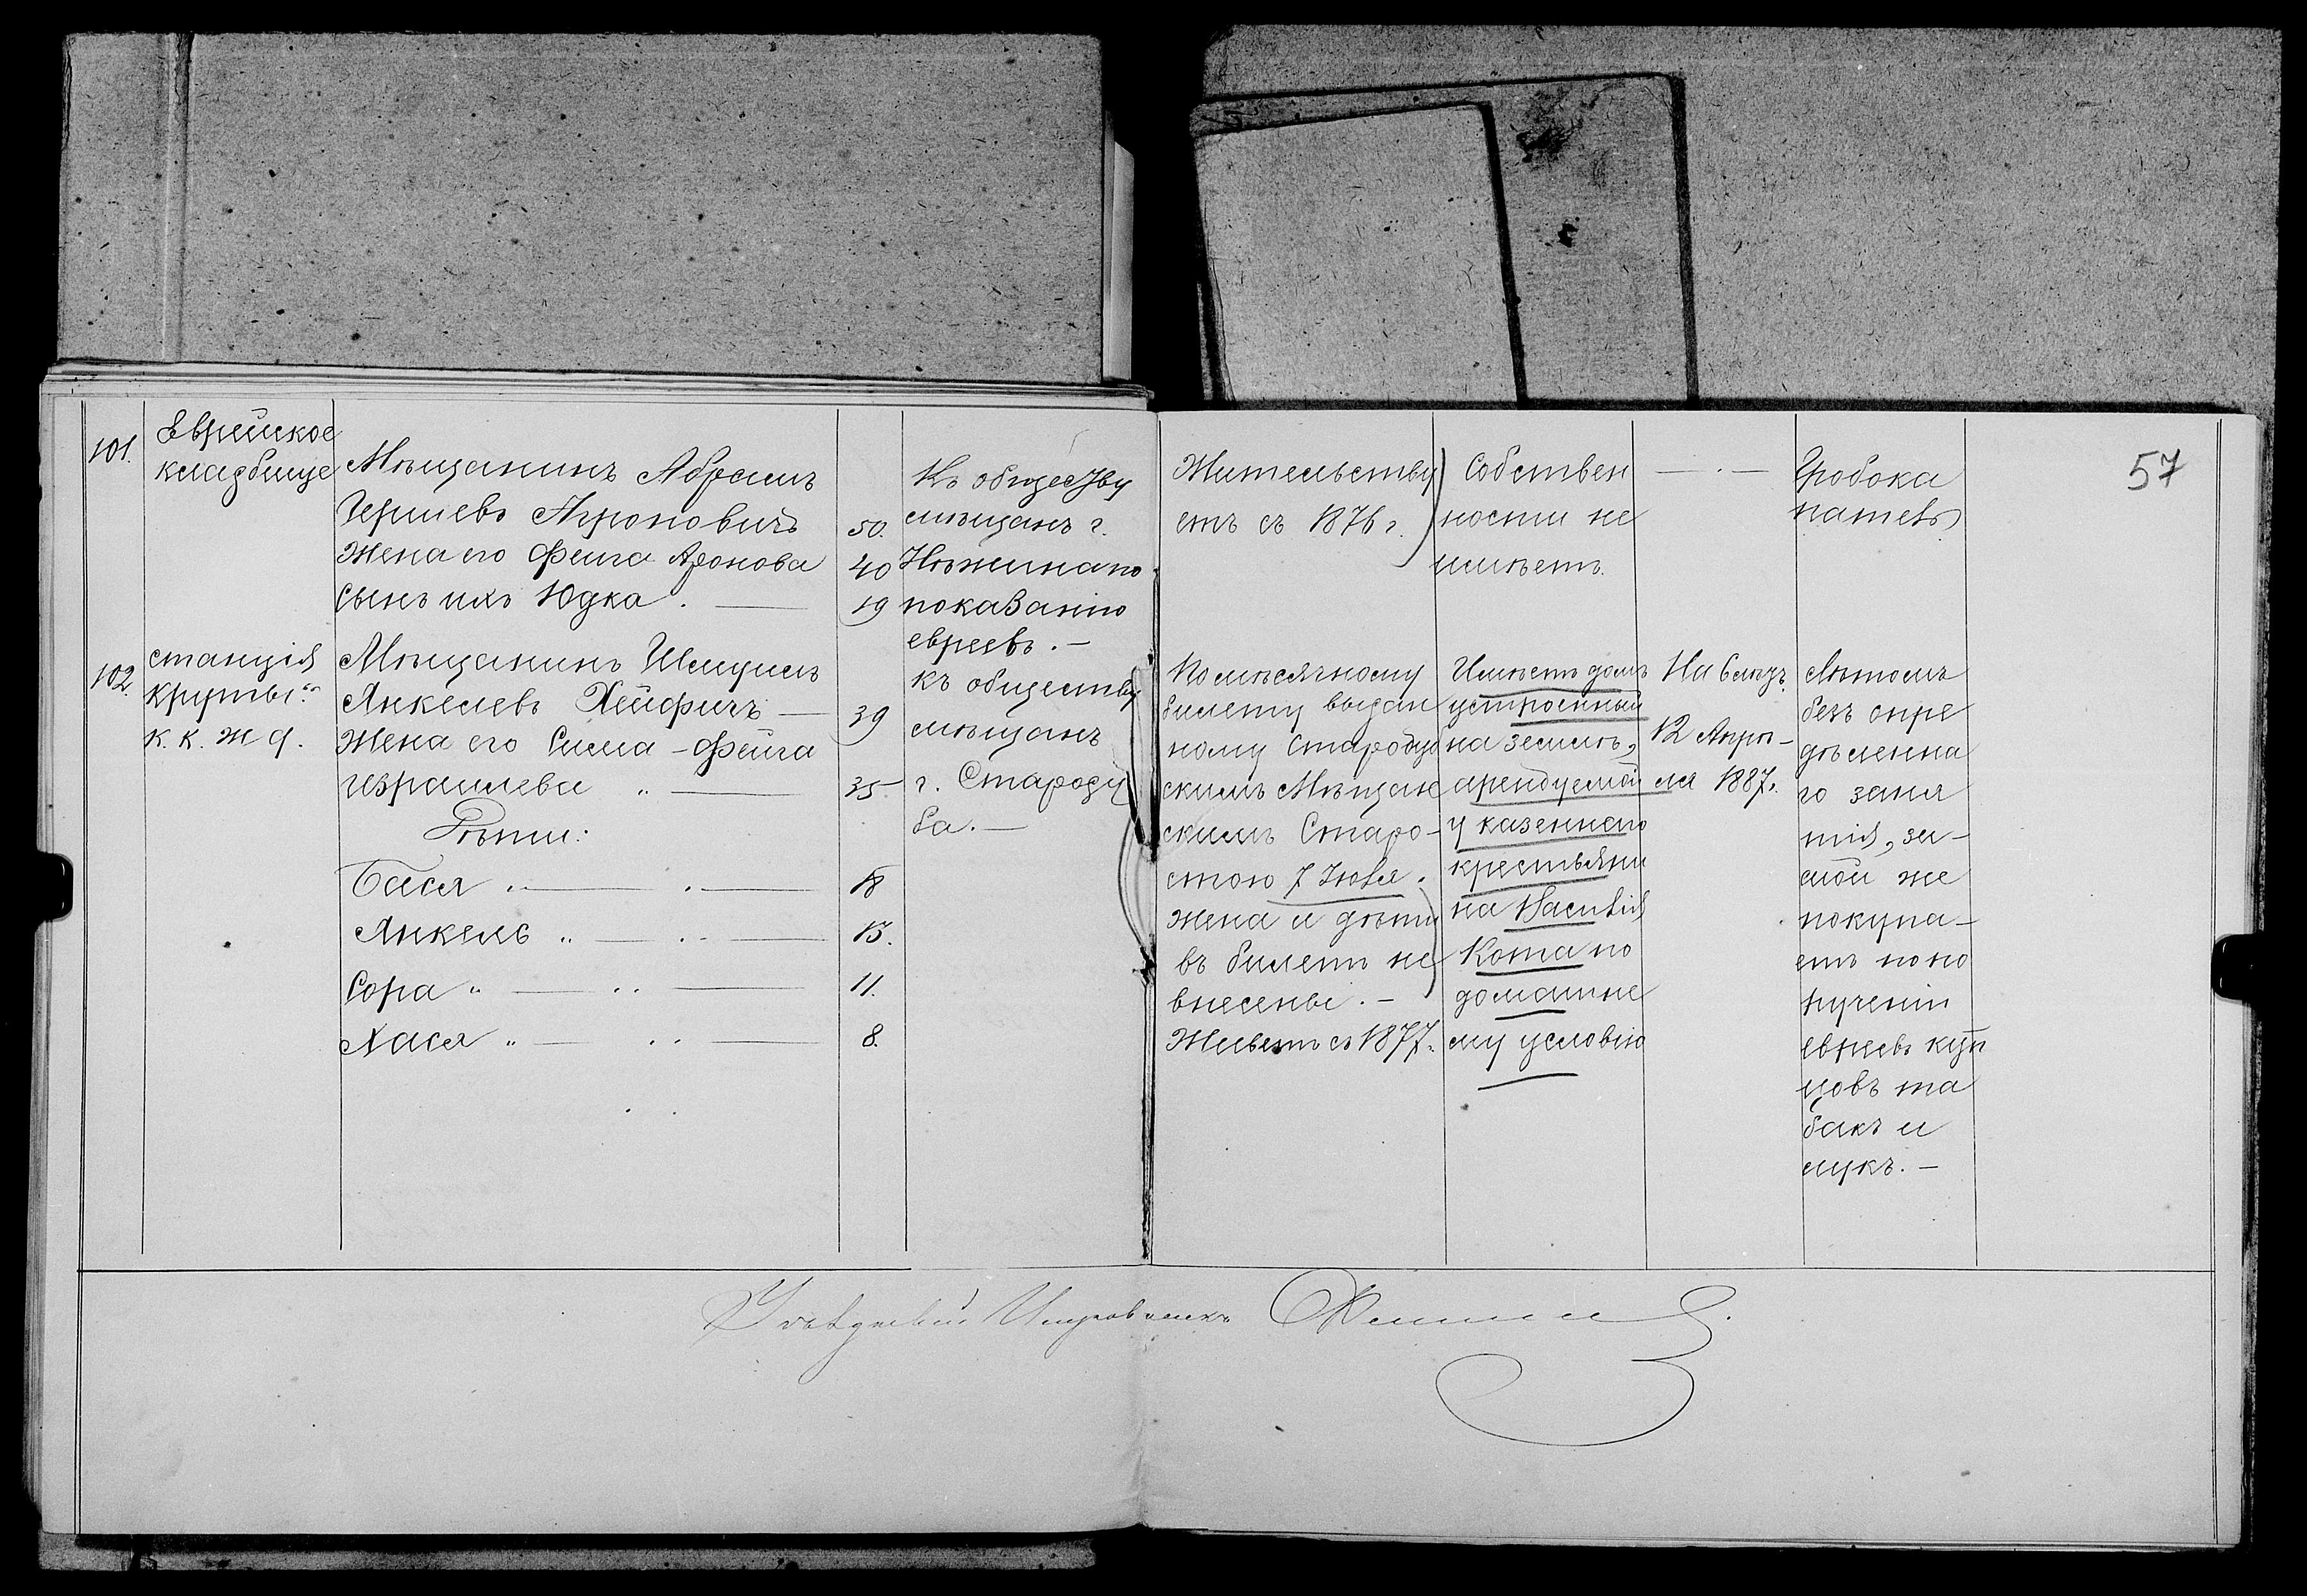 57
101.
Еврейское
кладбище
Мѣщанинъ Абрамъ
Гершевъ Агроновичъ
Жена его Фейга Аронова
Сынъ ихъ Юдка . —
50.
40
19
Къ обществу
мѣщанъ г.
Нѣжина по
показанію
евреевъ. —
Жительству
етъ съ 1876 г.
Собствен
ности не
имѣетъ.
— . —
Гробока
патель
102.
станція
Круты"
К. К. ж д.
Мѣщанинъ Шмуилъ
Янкелевъ Хейфицъ —
Жена его Сима-Фейга
Израилева „ —
Дѣти:
Бася „ — . —
Янкель „ — „ —
Сора „ — „ —
Хася „ — „ —
39
35
18
15.
11.
8.
къ обществу
мѣщанъ
г. Староду
ба. —
По мѣсячному
билету выдан
ному Стародуб
скимъ Мѣщан
скимъ Старо-
стою 7 Іюля.
Жена и дѣти
въ билетъ не
внесены. —
Живетъ съ 1877 г.
Имѣетъ домъ
устроенный
на землѣ,
арендуемой
у казеннаго
крестьяни
на Василія
Кота по
домашне
му условію
На 6 мѣс.
12 Апрѣ-
ля 1887 г.
Лѣтомъ
безъ опре
дѣленна
го заня
тія, зи-
мой же
покупа-
етъ по по
рученію
евреевъ куп
цовъ та
бакъ и
лукъ. —
Уѣздный Исправникъ